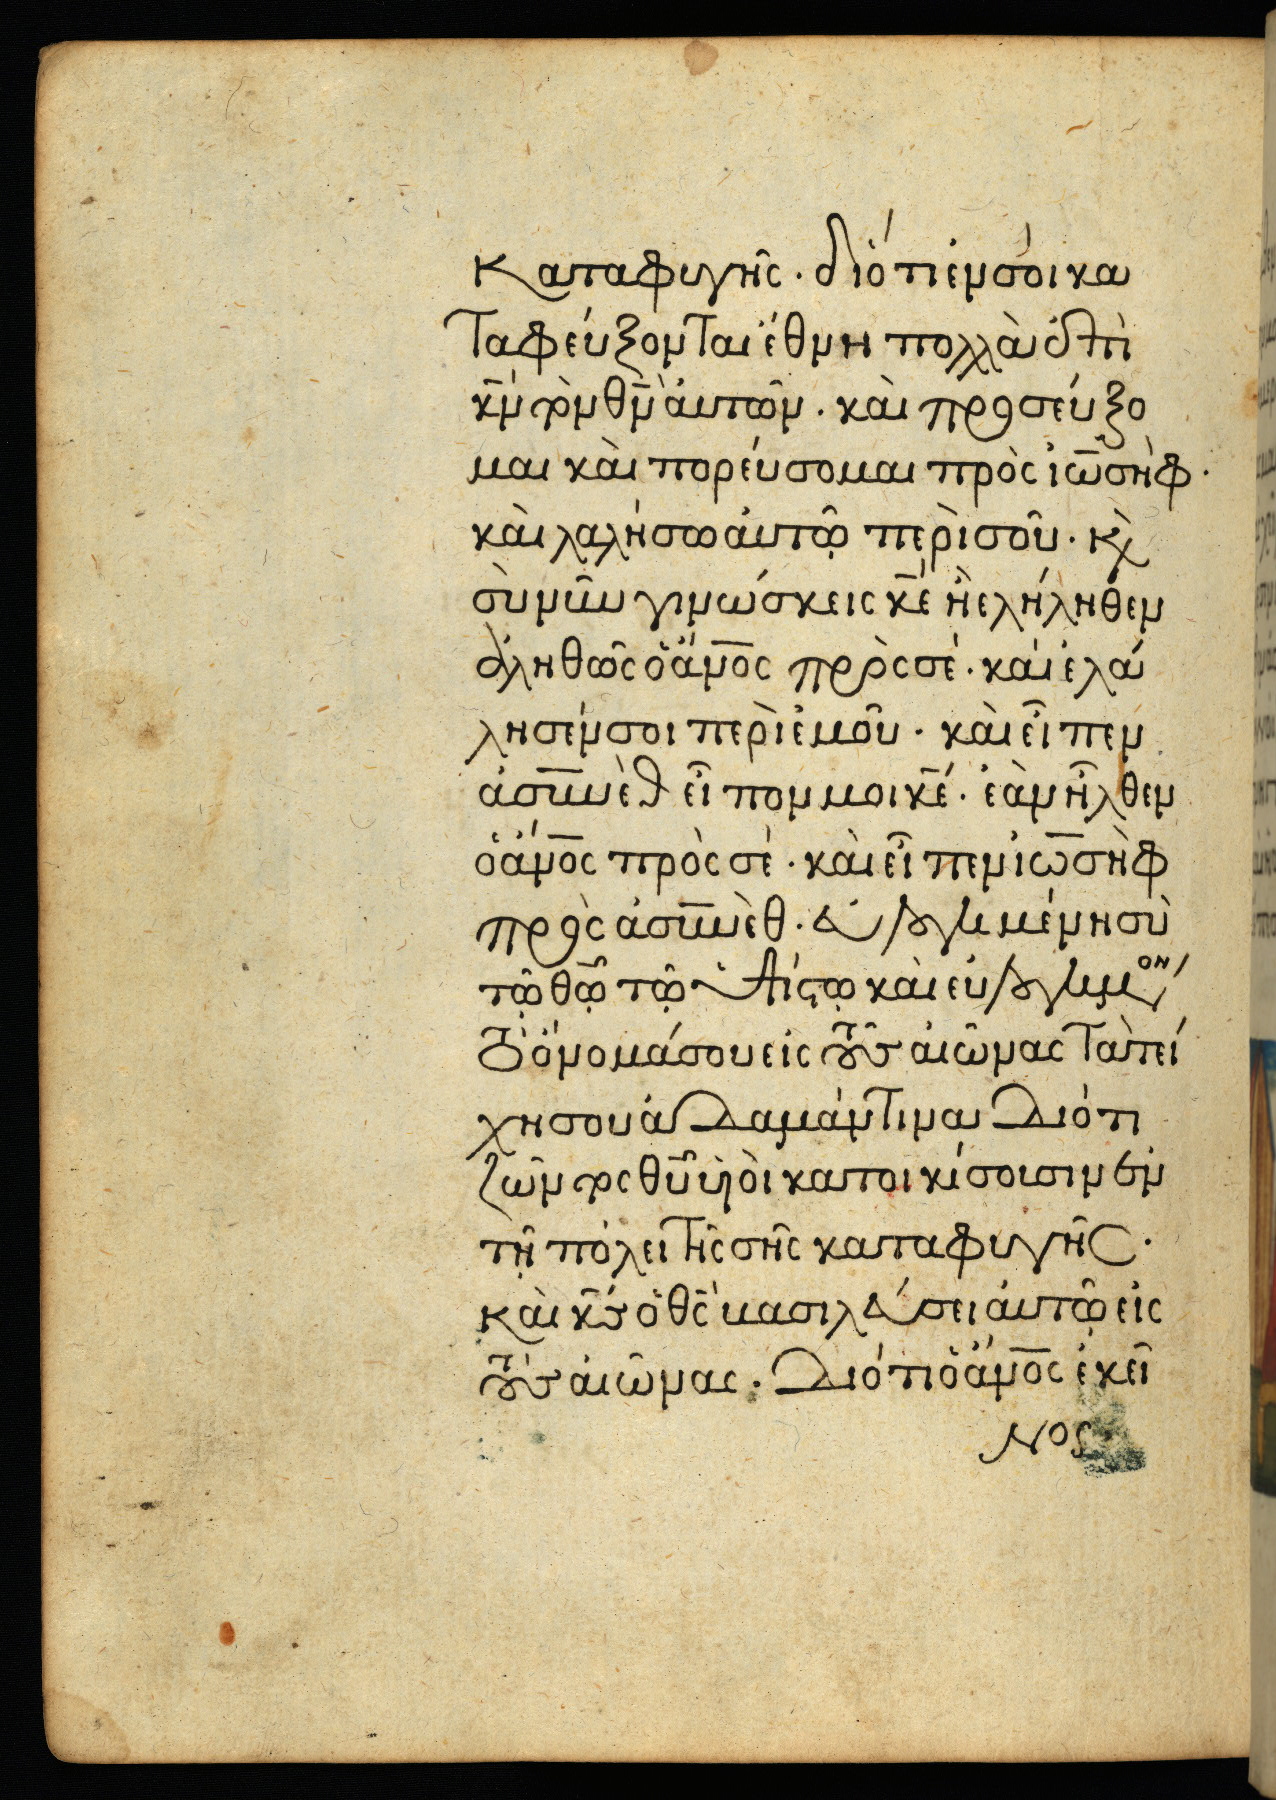 καταφυγῆς · διότι ἐν σοὶ κα
ταφεύξονται ἔθνη πολλὰ ἐπὶ
κ̅ν̅ τὸν θ̅ν̅ αὐτῶν · καὶ προσεύξο
μαι καὶ πορεύσομαι πρὸς ἰωσὴφ ·
καὶ λαλήσω αὐτῶ περὶ σοῦ · κὶ
σὺ νῦν γινώσκεις κ̅ε̅ ἢ ἐλήληθεν
ἀληθῶς ὁ ἄν̅ο̅ς πρὸς σέ · καὶ ἐλά
λησέν σοι περὶ ἐμοῦ · καὶ εἶπεν
ἀσυνὲθ εἶπον μοι κ̅ε̅ · ἐὰν ἦλθεν
ὁ ἄν̅ο̅ς πρὸς σέ · καὶ εἶπεν ἰωσὴφ
πρὸς ἀσυνὲθ · εὐλογημένη σὺ
τῶ θ̅ῶ̅ τῶ ὑψίστω καὶ εὐλογημένον
τὸ ὄνομά σου εἰς τοὺς αἰῶνας τὰ τεί
χη σου ἀδαμάντιναι διότι
ζῶντος θ̅υ̅ υἱοὶ κατοικίσοισιν ἐν
τῇ πόλει τῆς σῆς καταφυγῆς ·
καὶ κ̅ς̅ ὁ θ̅ς̅ βασιλεύσει αὐτῶ εἰς
τοὺς αἰῶνας · διότι ὁ ἄν̅ο̅ς ἐκεῖ
νος